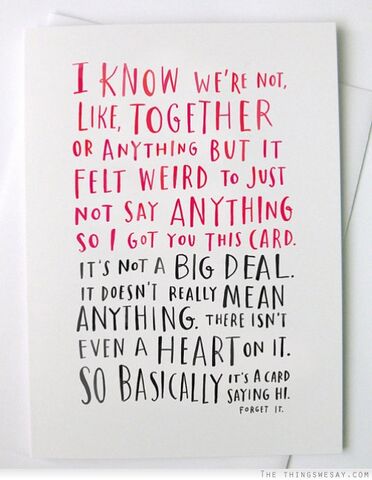 I KNOW WE'RE NOT,
LIKE, TOGETHER
OR ANYTHING BUT IT
FELT WEIRD TO JUST
NOT SAY ANYTHING
SO I GOT YOU THIS CARD.
IT'S NOT A BIG DEAL.
IT DOESN'T REALLY MEAN
ANYTHING. THERE ISN'T
EVEN A HEART ON IT.
SO BASICALLY IT'S A CARD
SAYING HI.
FORGET IT.
THE THINGSWESAY.COM